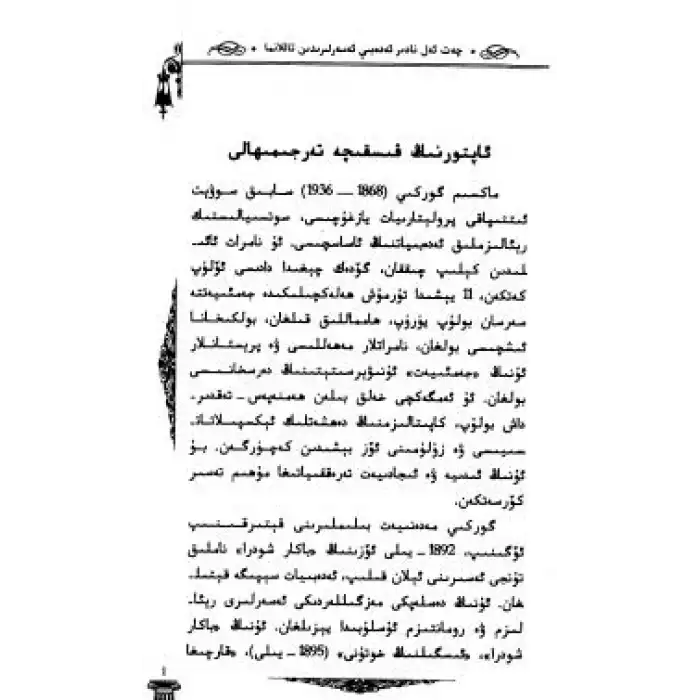 چەت ئەل نادىر ئەدەبىي ئەسەرلىرىدىن تاللانما
ئاپتورنىڭ قىسقىچە تەرجىمىھالى
ماكسىم گوركىي (1868 — 1936) سابىق سوۋېت
ئىتتىپاقى پرولېتارىيات يازغۇچىسى، سوتسىيالىستىك
رېئالىزملىق ئەدەبىياتنىڭ ئاساسچىسى. ئۇ نامرات ئائى‍
لىدىن كېلىپ چىققان، گۆدەك چېغىدا دادىسى ئۆلۈپ
كەتكەن، 11 يېشىدا تۇرمۇش ھەلەكچىلىكىدە جەمئىيەتتە
سەرسان بولۇپ يۈرۈپ، ھامماللىق قىلغان، بولكىخانا
ئىشچىسى بولغان، نامراتلار مەھەللىسى ۋە پرىستانلار
ئۇنىڭ «جەمئىيەت» ئۇنىۋېرسىتېتىنىڭ دەرسخانىسى
بولغان. ئۇ ئەمگەكچى خەلق بىلەن ھەمنەپەس – تەقدىر‍
داش بولۇپ، كاپىتالىزمنىڭ دەھشەتلىك ئېكسپىلاتات‍
سىيىسى ۋە زۇلۇمىنى ئۆز بېشىدىن كەچۈرگەن. بۇ
ئۇنىڭ ئىدىيە ۋە ئىجادىيەت تەرەققىياتىغا مۇھىم تەسىر
كۆرسەتكەن.
گوركىي مەدەنىيەت بىلىملىرىنى قېتىرقىنىپ
ئۆگىنىپ، 1892 – يىلى ئۆزىنىڭ «ماكار شودرا» ناملىق
تۇنجى ئەسىرىنى ئېلان قىلىپ، ئەدەبىيات سېپىگە قېتىل‍
غان. ئۇنىڭ دەسلەپكى مەزگىللەردىكى ئەسەرلىرى رېئا‍
لىزم ۋە رومانتىزم ئۇسلۇبىدا يېزىلغان. ئۇنىڭ «ماكار
شودرا»، «ئىسگىلنىڭ خوتۇنى» (1895 – يىلى)، «قارچىغا
1